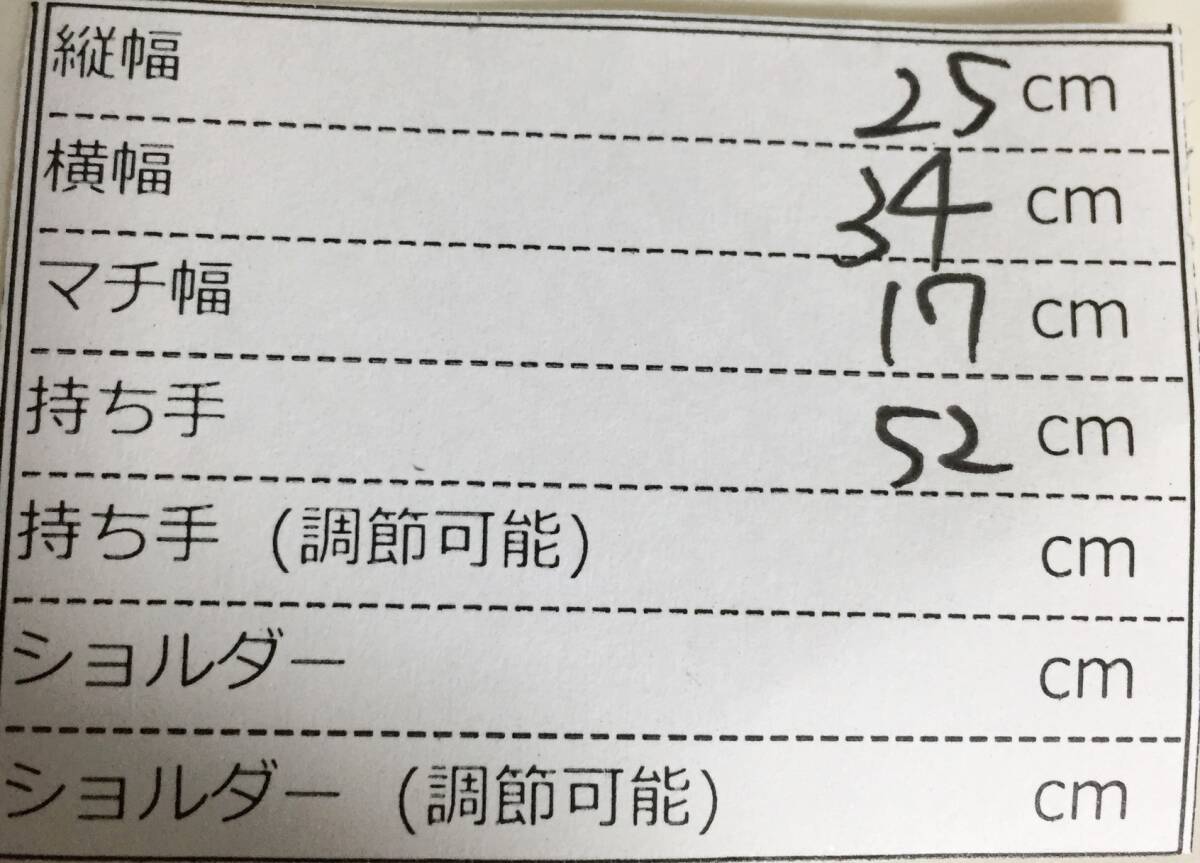 縦幅 25 cm
横幅 34 cm
マチ幅 17 cm
持ち手 52 cm
持ち手 (調節可能) cm
ショルダー cm
ショルダー (調節可能) cm